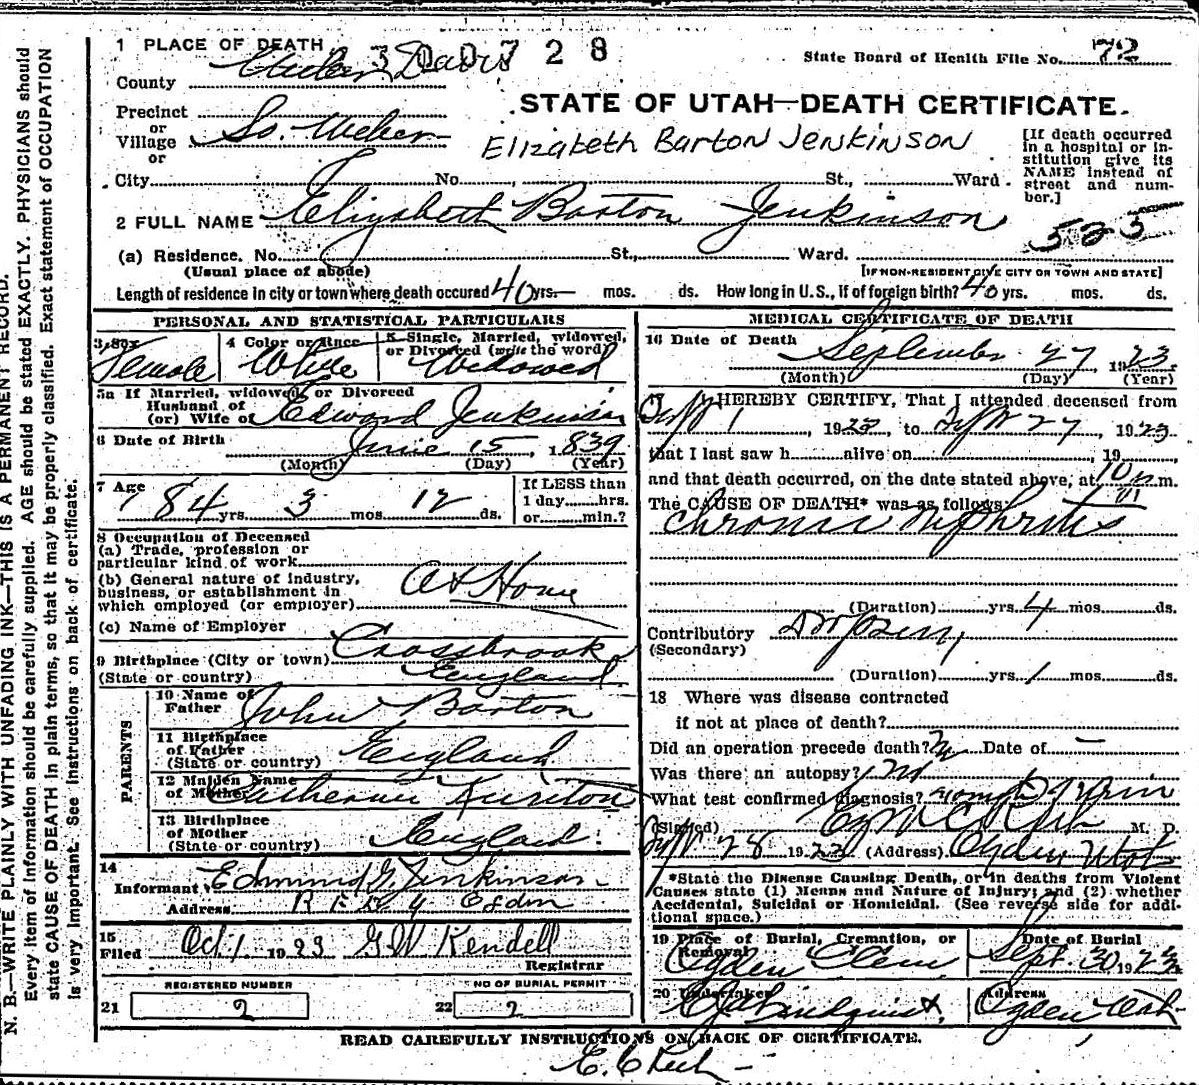 N. B.—WRITE PLAINLY WITH UNFADING INK—THIS IS A PERMANENT RECORD.
Every item of information should be carefully supplied. AGE should be stated EXACTLY. PHYSICIANS should
state CAUSE OF DEATH in plain terms, so that it may be properly classified. Exact statement of OCCUPATION
is very important. See instructions on back of certificate.
1 PLACE OF DEATH
County Weber Davis 728
State Board of Health File No. 72
STATE OF UTAH—DEATH CERTIFICATE.
Precinct
or
Village So. Weber
or
Elizabeth Barton Jenkinson
[If death occurred
in a hospital or in-
stitution give its
NAME instead of
street and num-
ber.]
City No. St., Ward
2 FULL NAME Elizabeth Barton Jenkinson
525
(a) Residence. No. St., Ward.
(Usual place of abode) [IF NON-RESIDENT GIVE CITY OR TOWN AND STATE]
Length of residence in city or town where death occured 40 yrs.— mos. ds. How long in U.S., if of foreign birth? 40 yrs. mos. ds.
PERSONAL AND STATISTICAL PARTICULARS
3 Sex Female
4 Color or Race White
5 Single, Married, widowed,
or Divorced (write the word)
Widowed
5a If Married, widowed, or Divorced
Husband of
(or) Wife of Edward Jenkinson
6 Date of Birth June 15, 1839
(Month) (Day) (Year)
7 Age 84 yrs. 3 mos 12 ds.
If LESS than
1 day hrs.
or min.?
8 Occupation of Deceased
(a) Trade, profession or
particular kind of work
(b) General nature of industry,
business, or establishment in
which employed (or employer) At Home
(c) Name of Employer
9 Birthplace (City or town) Crossbrook
(State or country) England
PARENTS
10 Name of
Father John Barton
11 Birthplace
of Father England
(State or country)
12 Maiden Name
of Mother Catherine
13 Birthplace
of Mother England
(State or country)
14
Informant Edmund G Jenkinson
Address R F D 4 Ogden
15
Filed Oct 1 1923 G W Kendell
Registrar
REGISTERED NUMBER
21 2
NO OF BURIAL PERMIT
22 2
MEDICAL CERTIFICATE OF DEATH
16 Date of Death
September 27 1923
(Month) (Day) (Year)
17 I HEREBY CERTIFY, That I attended deceased from
Sept 1, 1923, to Sept 27, 1923
that I last saw h alive on , 19
and that death occurred, on the date stated above, at 10 p.m.
The CAUSE OF DEATH* was as follows:
Chronic Nephritis
(Duration) yrs. 4 mos. ds.
Contributory Dropsy
(Secondary)
(Duration) yrs. 1 mos. ds.
18 Where was disease contracted
if not at place of death?
Did an operation precede death? No Date of —
Was there an autopsy? No
What test confirmed diagnosis?
(Signed) M. D.
Sept 28 1923 (Address) Ogden Utah
*State the Disease Causing Death, or in deaths from Violent
Causes state (1) Means and Nature of Injury; and (2) whether
Accidental, Suicidal or Homicidal. (See reverse side for addi-
tional space.)
19 Place of Burial, Cremation, or
Removal Ogden Cem
Date of Burial
Sept. 30 1923
20 Undertaker
Lindquist
Address
Ogden Utah
READ CAREFULLY INSTRUCTIONS ON BACK OF CERTIFICATE.